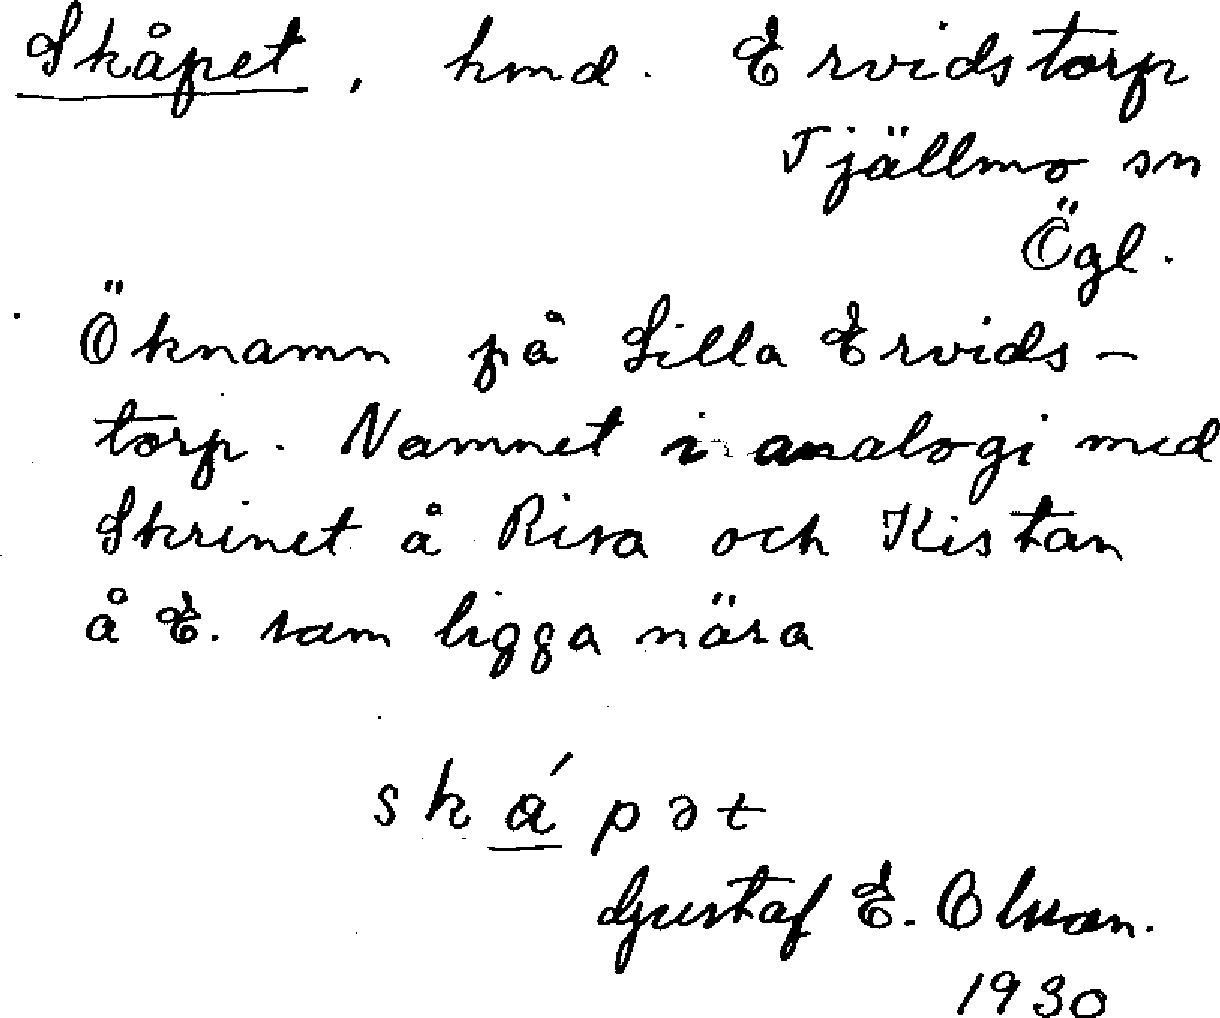 Skåpet, hmd. Ervidstorp
Tjällmo sn
Ögl.
Öknamn på Lilla Ervids-
torp. Namnet i analogi med
Skrinet å Risa och Kistan
å E. som ligga nära
skápət
Gustaf E. Olson.
1930